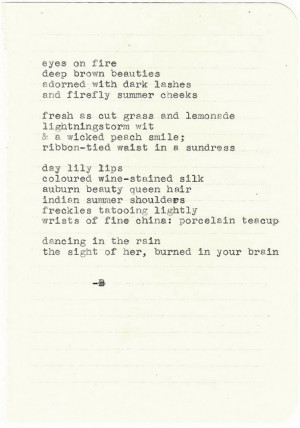 eyes on fire
deep brown beauties
adorned with dark lashes
and firefly summer cheeks
fresh as cut grass and lemonade
lightningstorm wit
& a wicked peach smile;
ribbon-tied waist in a sundress
day lily lips
coloured wine-stained silk
auburn beauty queen hair
indian summer shoulders
freckles tatooing lightly
wrists of fine china: porcelain teacup
dancing in the rain
the sight of her, burned in your brain